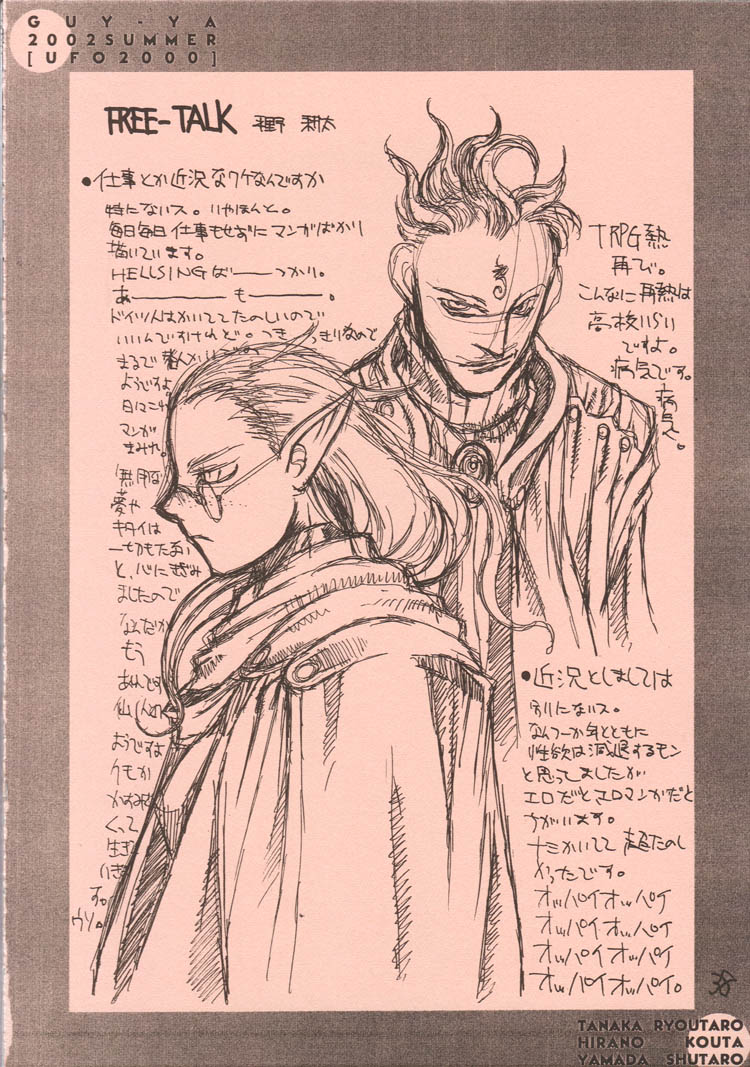 GUY-YA
2002SUMMER
[UFO2000]
FREE-TALK 平野 耕太
●仕事とか近況なワケなんですか
特にないス。いやほんと。
毎日毎日仕事もせずにマンガばかり
描いています。
HELLSINGば――つかり。
あ―――も―――。
ドイツ人はかいててたのしいので
いいんですけれど。
まるで
ようですよ
日にニチ
マンガ
まみれ。
夢や
キタイは
一切もたない
と、心にきざみ
ましたので
なんだか
もう
ようですよ
クモか
くって
生き
す。
ウソ。
TRPG熱
再び。
こんなに再熱は
高校いらい
ですよ。
病気です。
病
気。
●近況としましては
別にないス。
なんつーか年とともに
性欲は減退するモン
と思ってましたが
エロだとエロマンガだと
ちがいます。
ナミかいてて超たのし
かったです。
オッパイオッパイ
オッパイオッパイ
オッパイオッパイ
オッパイオッパイ。
38
TANAKA RYOUTARO
HIRANO KOUTA
YAMADA SHUTARO